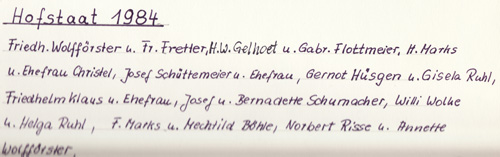 Hofstaat 1984
Friedh. Wolfförster u. Fr. Fretter, H.W. Gelhoet u. Gabr. Flottmeier, H. Marks
u. Ehefrau Christel, Josef Schüttemeier u. Ehefrau, Gernot Hüsgen u. Gisela Ruhl,
Friedhelm Klaus u. Ehefrau, Josef u. Bernadette Schumacher, Willi Wolke
u. Helga Ruhl, F. Marks u. Mechtild Böhle, Norbert Risse u. Annette
Wolfförster.